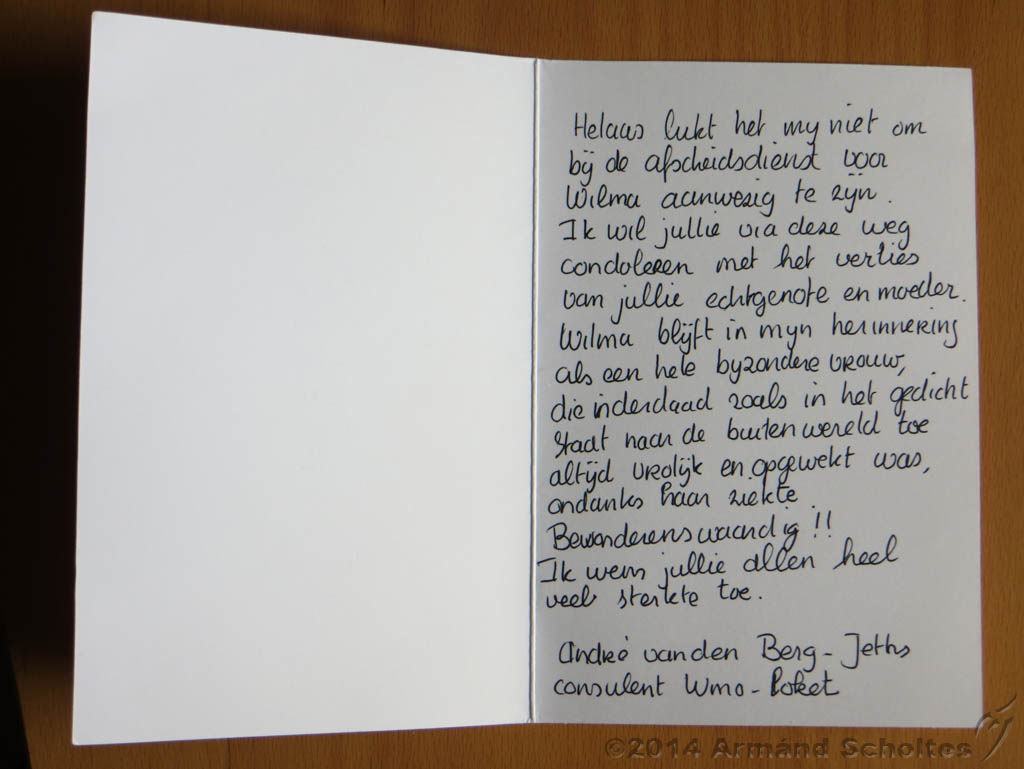 Helaas lukt het my niet om
bij de afscheidsdienst voor
Wilma aanwezig te zijn.
Ik wil jullie via deze weg
condoleren met het verlies
van jullie echtgenote en moeder.
Wilma blijft in mijn herinnering
als een hele byzondere vrouw,
die inderdaad zoals in het gedicht
staat naar de buitenwereld toe
altijd vrolijk en opgewekt was,
ondanks haar ziekte.
Bewonderenswaardig!!
Ik wens jullie allen heel
veel sterkte toe.
André van den Berg-Jeths
consulent Wmo-loket
©2014 Armánd Scholtes